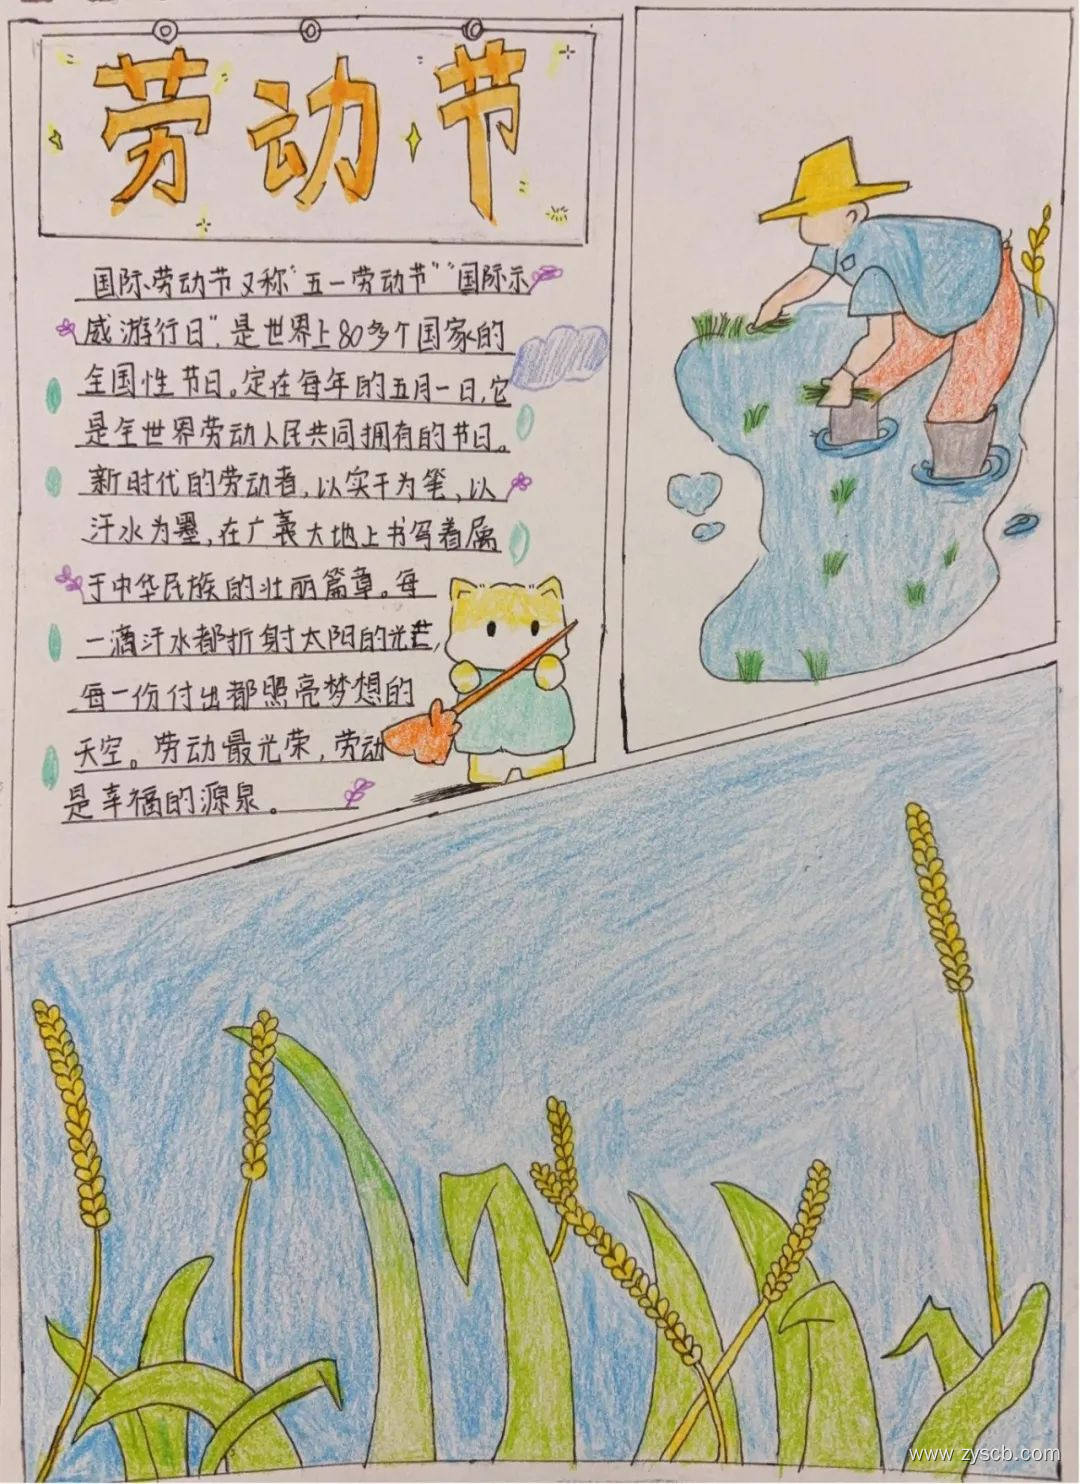 劳动节
国际劳动节又称“五一劳动节”“国际示
威游行日”,是世界上80多个国家的
全国性节日。定在每年的五月一日,它
是全世界劳动人民共同拥有的节日。
新时代的劳动者,以实干为笔,以
汗水为墨,在广袤大地上书写着属
于中华民族的壮丽篇章。每
一滴汗水都折射太阳的光芒,
每一份付出都照亮梦想的
天空。劳动最光荣,劳动
是幸福的源泉。
www.zyscb.com